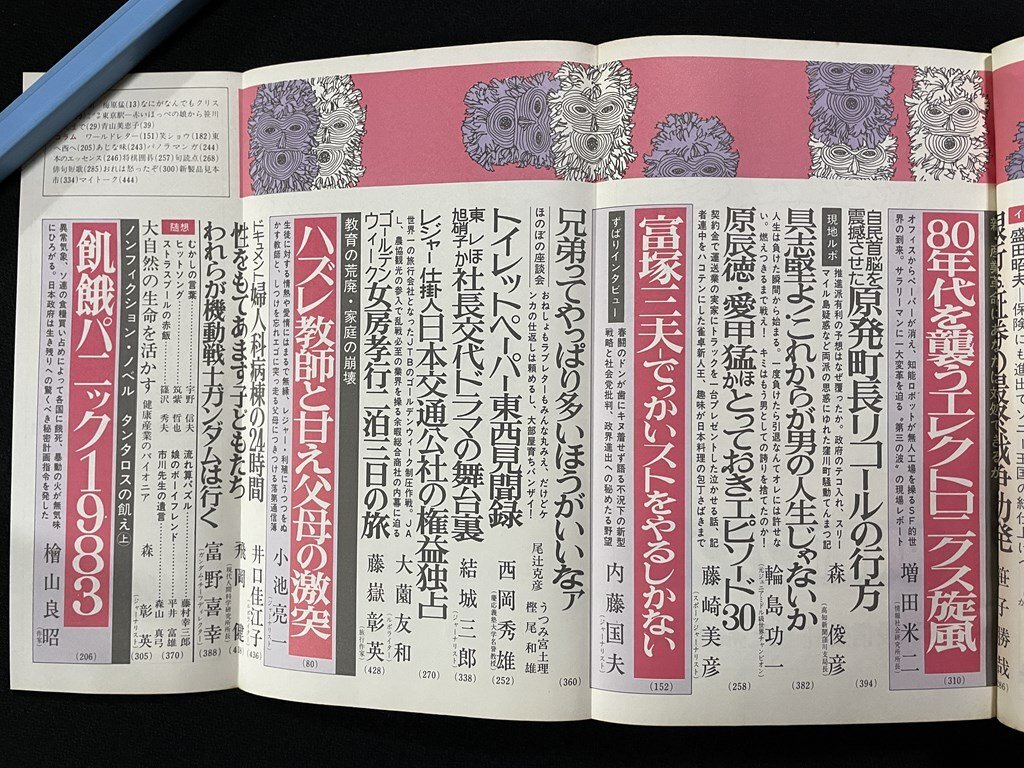 盛田昭夫
80年代を襲うエレクトロニクス旋風
オフィスからペーパーが消え、知能ロボットが無人工場を操るSF的世
界の到来。サラリーマンに一大変革を迫る〝第三の波〟の現場レポート
増田米二
(情報社会研究所所長)
(310)
自民首脳を
震撼させた
原発町長リコールの行方
現地ルポ
推進派有利の予想はなぜ覆ったか。政府のテコ入れ、スリー
マイル島疑惑など両派の思惑にゆれた窪川町騒動てんまつ記
森俊彦
(高知新聞窪川支局長)
(394)
具志堅よ・これからが男の人生じゃないか
人生は負けた瞬間から始まる。一度負けたら引退なんてオレには許せな
い。燃えつきるまで戦え！ キミはもう男としての誇りを捨てたのか！
輪島功一
(元ジュニアミドル級世界チャンピオン)
(382)
原辰徳・愛甲猛ほかとっておきエピソード30
契約金で運送業の実家にトラックを一台プレゼントした泣かせる話、記
者連中をハコテンにした雀卓新人王、趣味が日本料理の包丁さばきまで
藤崎美彦
(スポーツジャーナリスト)
(258)
富塚三夫―でっかいストをやるしかない
ずばりインタビュー
春闘のドンが歯にキヌ着せず語る不況下の新型
戦略と社会党批判、政界進出への秘めたる野望
内藤国夫
(152)
兄弟ってやっぱり多いほうがいいなァ
ほのぼの座談会
おねしょもラブレターもみんな丸みえ、だけどケ
ンカの仕返しは頼めるし、大部屋育ちバンザイ！
尾辻克彦
うつみ宮土理
樫尾和雄
(360)
トイレットペーパー東西見聞録
西岡秀雄
(慶応義塾大学名誉教授)
(252)
東レほか
旭硝子
社長交代ドラマの舞台裏
結城三郎
(338)
レジャー仕掛人日本交通公社の権益独占
世界一の旅行会社となったJTBのゴールデンウィーク制圧作戦。JA
L、農協観光の参入で乱戦必至の業界を操る余暇総合商社の内幕に迫る
大薗友和
(ルポライター)
(270)
ゴールデン
ウィーク
女房孝行二泊三日の旅
藤嶽彰英
(旅行作家)
(428)
教育の荒廃・家庭の崩壊
ハズレ教師と甘え父母の激突
生徒に対する情熱や愛情にはまるで無縁、レジャー・利殖にうつつをぬ
かす教師と、しつけを忘れエゴに突っ走る父母につきつける落第通信簿
小池亮一
(ジャーナリスト)
(80)
ドキュメント婦人科病棟の24時間
井口佳江子
(436)
性をもてあます子どもたち
飛岡健
(現代人間科学研究所所長)
われらが機動戦士ガンダムは行く
富野喜幸
(ガンダム・チーフディレクター)
(388)
随想
むかしの言葉
宇野信夫
ヒットソング
筑紫哲也
ストラスブールの赤飯
篠沢秀夫
流れ算パズル
藤村幸三郎
娘のボーイフレンド
平井富雄
市川先生の遺言
森山真弓
(370)
大自然の生命を活かす
健康産業のパイオニア
森彰英
(ジャーナリスト)
(305)
ノンフィクション・ノベル タンタロスの飢え㊤
飢餓パニック1983
異常気象、ソ連の食糧買い占めによって各国に餓死、暴動の火が無気味
にひろがる。日本政府は生き残りへの驚くべき秘密計画指令を発した
檜山良昭
(作家)
(206)
梅原猛(13)なにがなんでもクリス
東京駅―赤いほっぺの娘から笹川
まで(29)青山美恵子(39)
コラム ワールドレター(151)笑ショウ(182)東
へ西へ(205)あじな味(243)パノラマンガ(244)
本のエッセンス(246)将棋囲碁(257)句読点(268)
俳句短歌(285)おれは怒ったぞ(300)新製品見本
市(334)マイトーク(444)